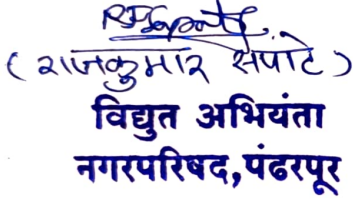 (राजकुमार सपाटे)
विद्युत अभियंता
नगरपरिषद,पंढरपूर